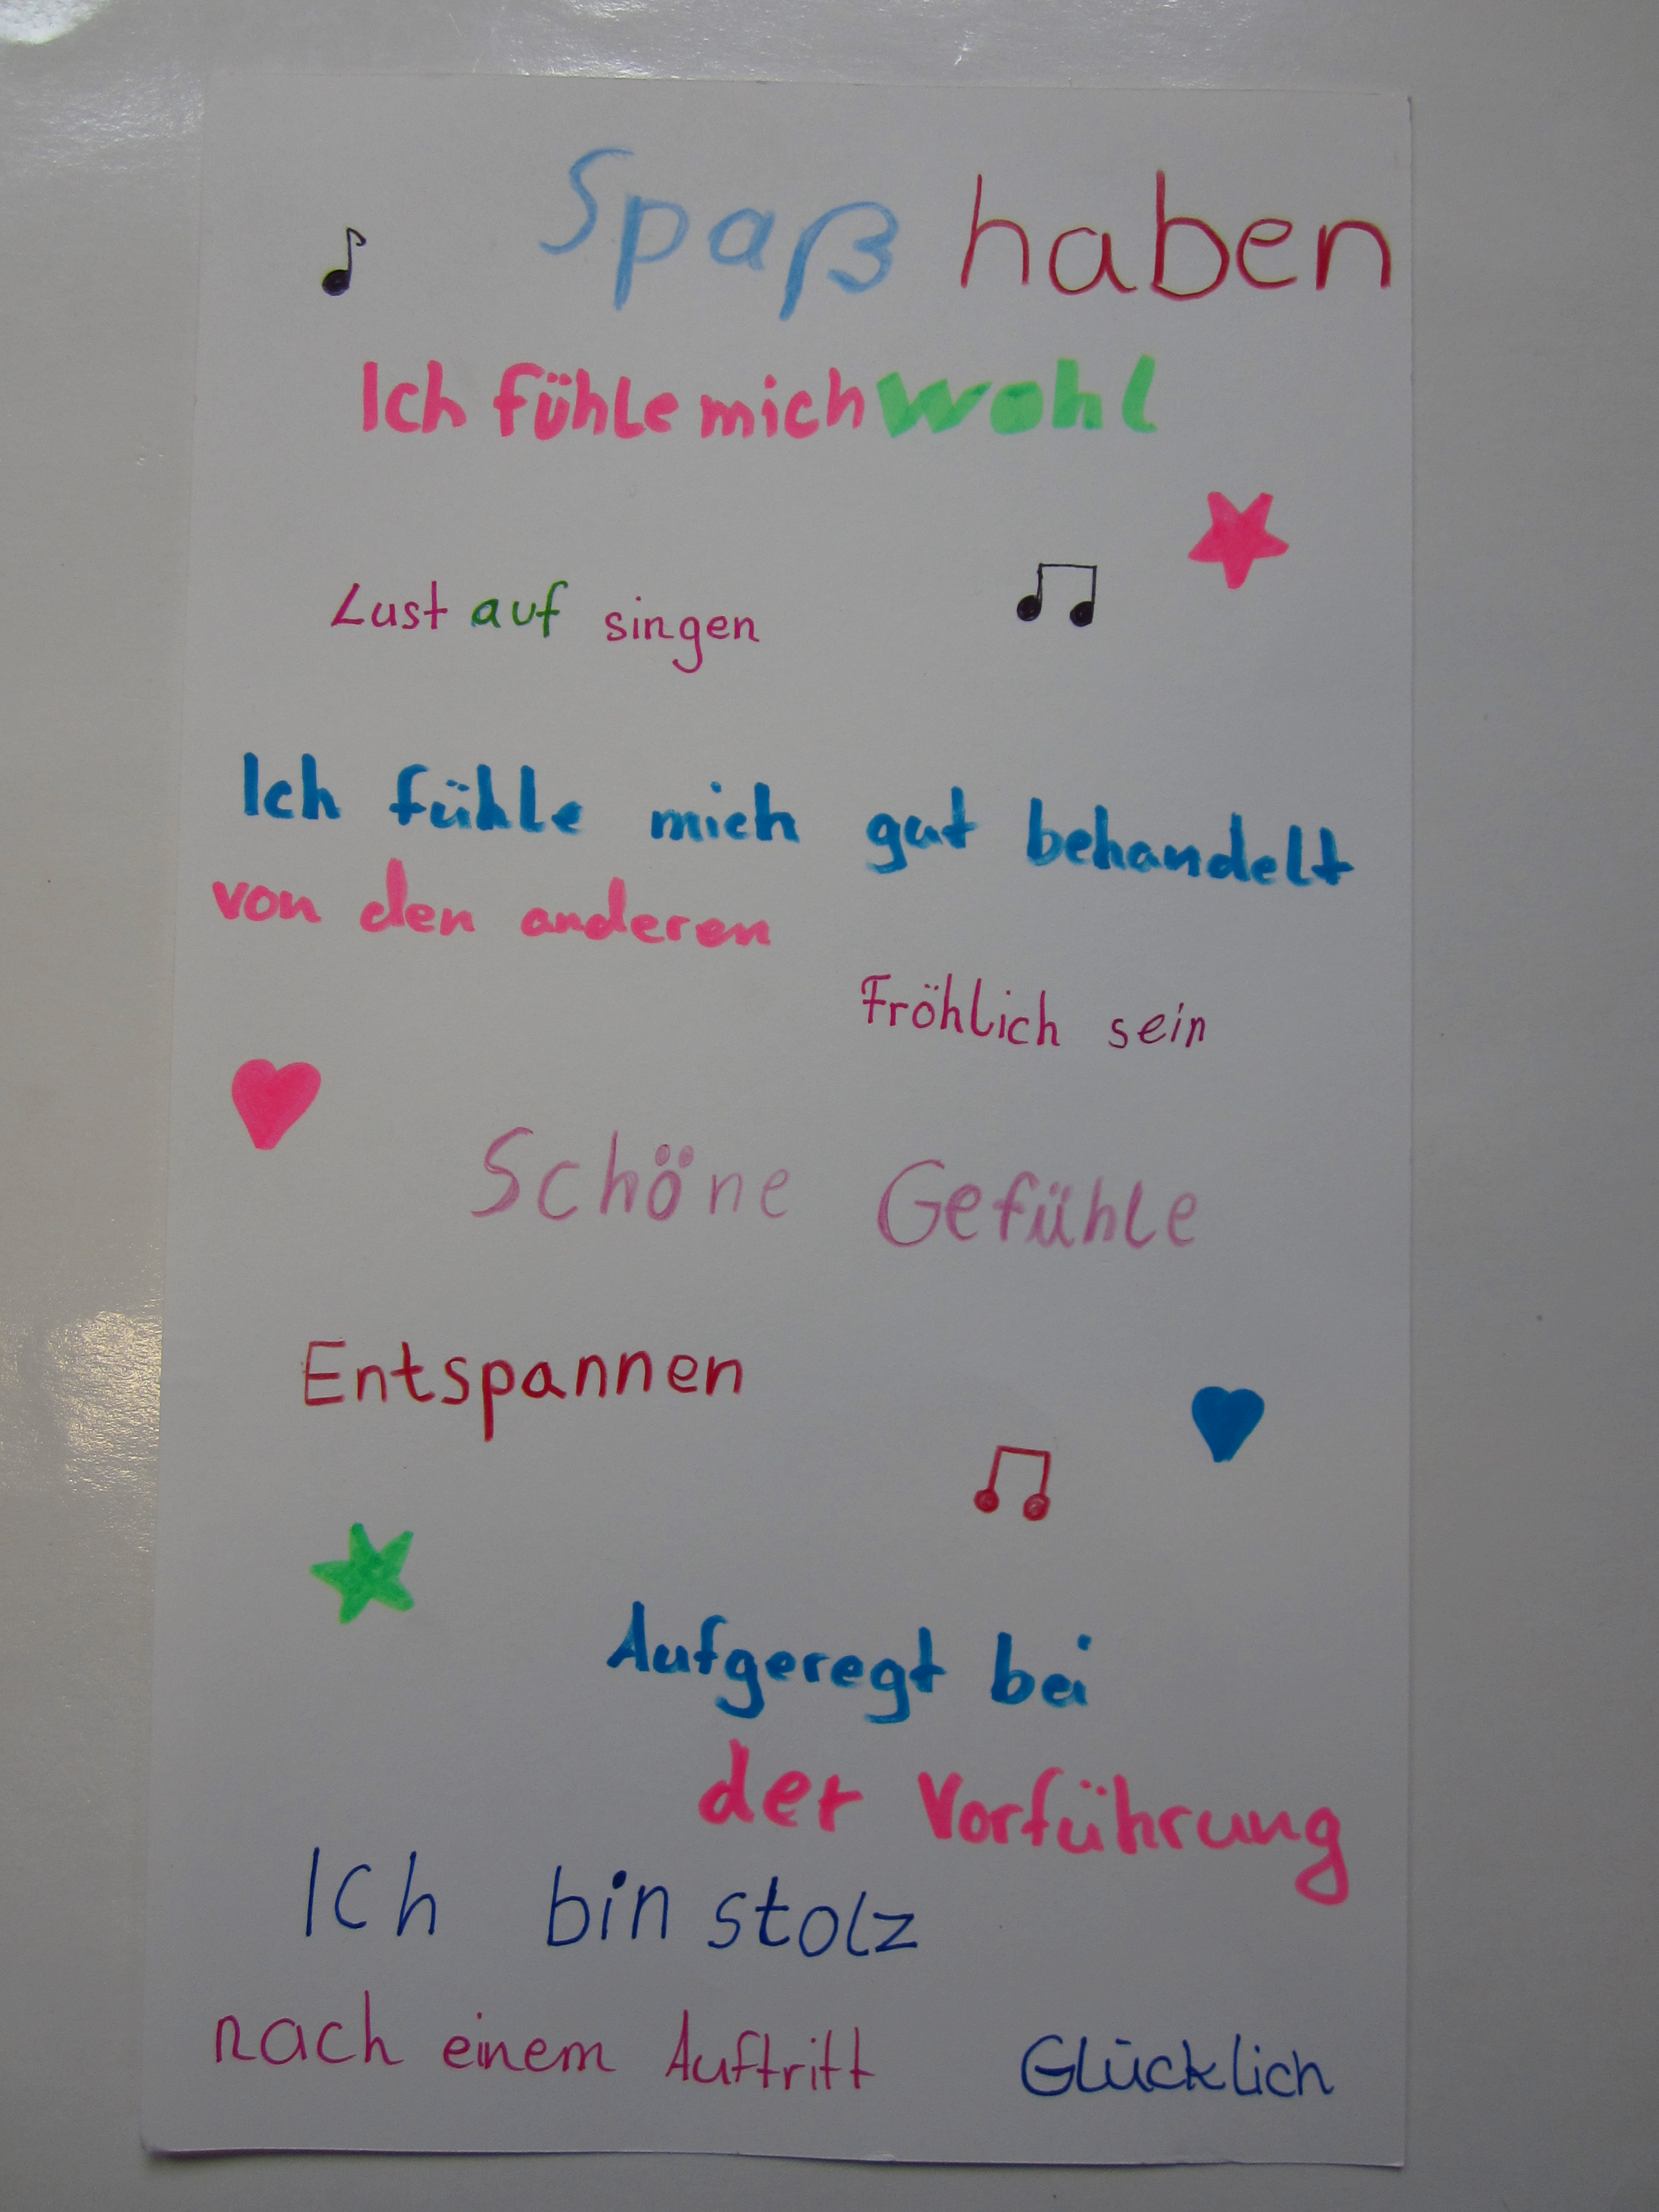 Spaß haben
Ich fühle mich wohl
Lust auf singen
Ich fühle mich gut behandelt
von den anderen
Fröhlich sein
Schöne Gefühle
Entspannen
Aufgeregt bei
der Vorführung
Ich bin stolz
nach einem Auftritt
Glücklich